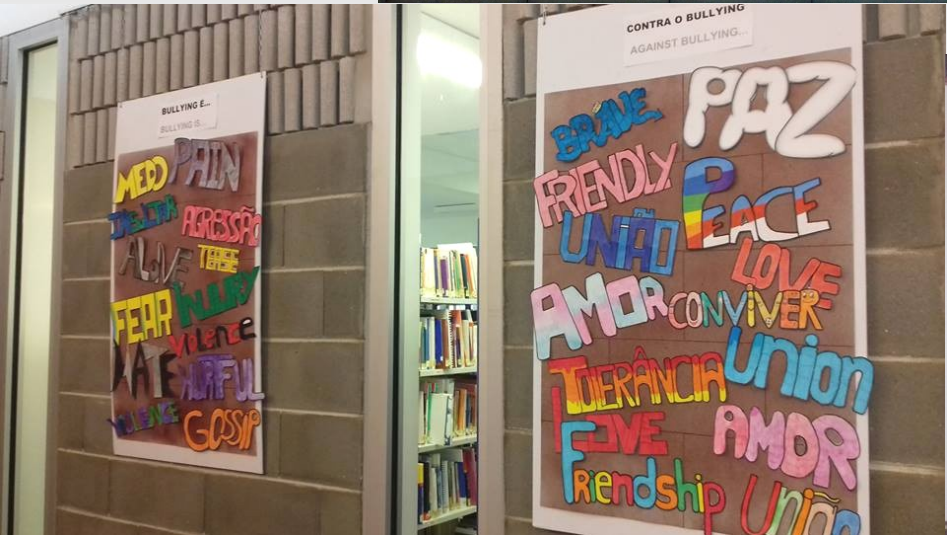 BULLYING É...
BULLYING IS...
MEDO PAIN
AGRESSÃO
ALONE TEASE
FEAR INJURY
VIOLENCE
HATE HURTFUL
GOSSIP
CONTRA O BULLYING
AGAINST BULLYING...
BRAVE PAZ
FRIENDLY PEACE
UNIÃO
LOVE
AMOR CONVIVER
UNION
TOLERÂNCIA
LOVE AMOR
Friendship União